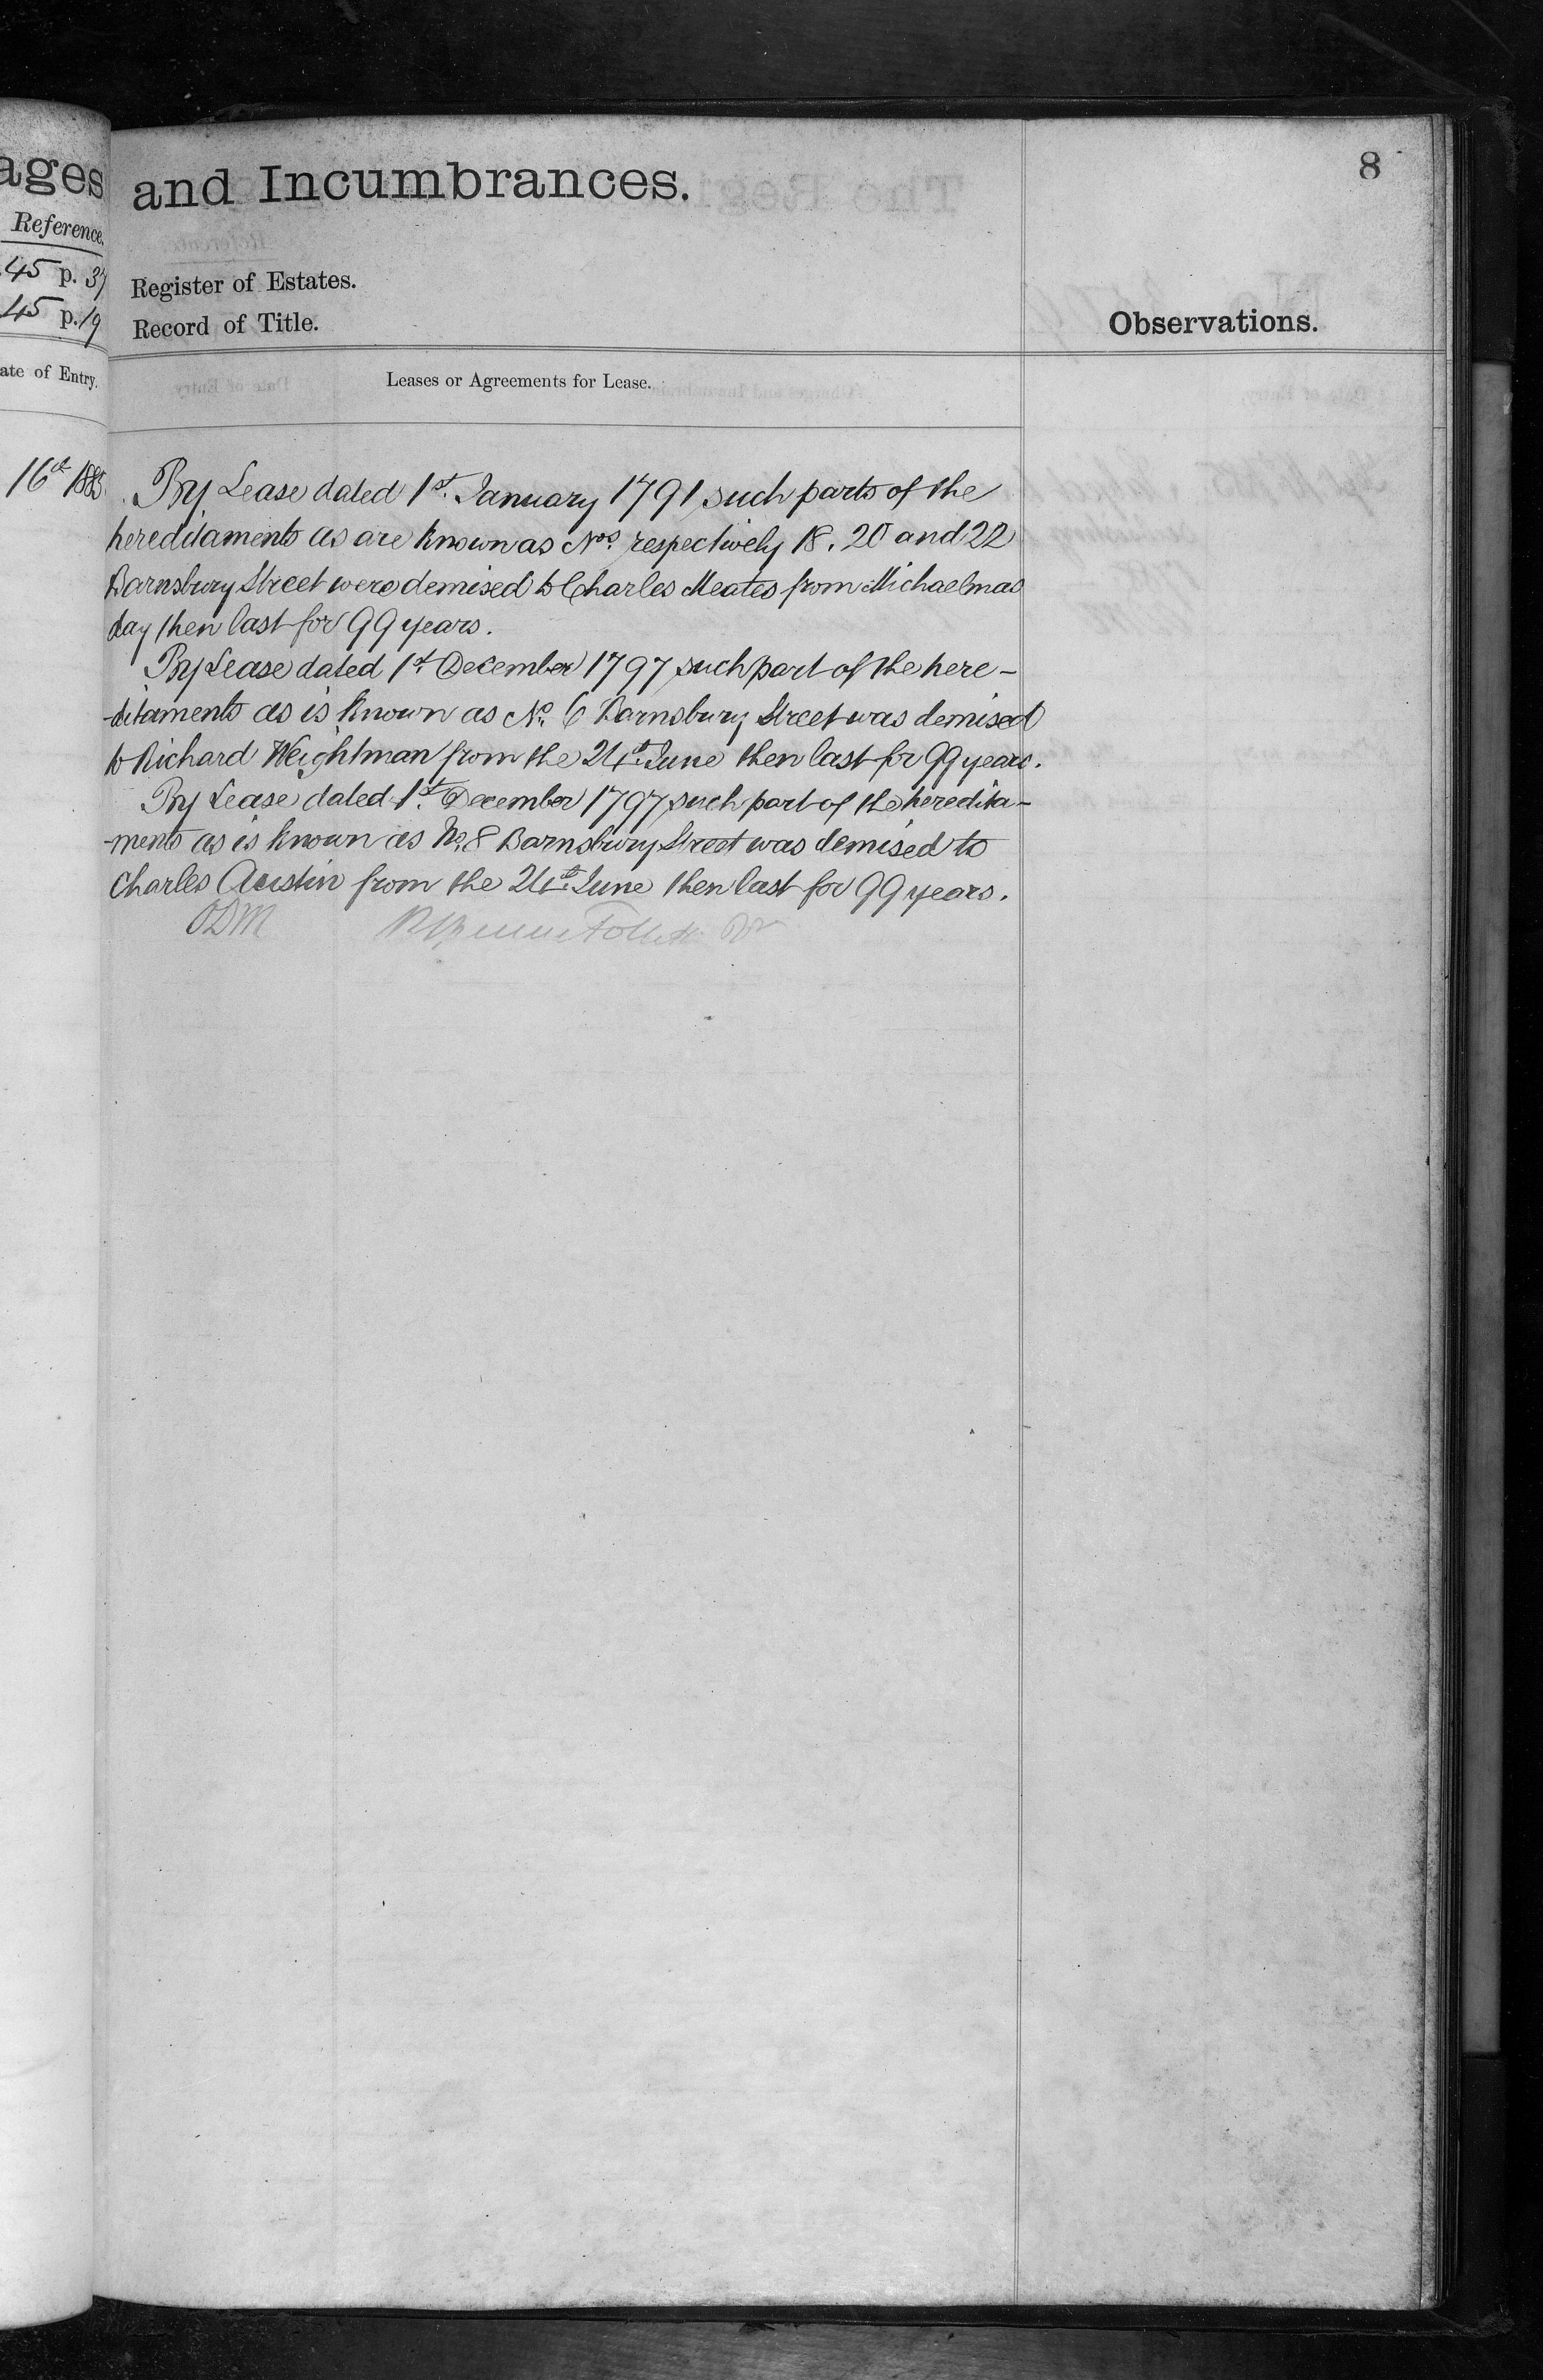 ages
Reference.
45 p. 37
45 p. 19
ate of Entry.
16th 1885.
and Incumbrances.
8
Register of Estates.
Record of Title.
Observations.
Leases or Agreements for Lease.
By Lease dated 1st. January 1791 such parts of the
hereditaments as are known as Nos. respectively 18. 20 and 22
Barnsbury Street were demised to Charles Meates from Michaelmas
day then last for 99 years.
By Lease dated 1st December 1797 such part of the here-
-ditaments as is known as No. 6 Barnsbury Street was demised
to Richard Weightman from the 24th. June then last for 99 years.
By Lease dated 1st. December 1797 such part of the heredita-
-ments as is known as No. 8 Barnsbury Street was demised to
Charles Austin from the 24th. June then last for 99 years.
ODM